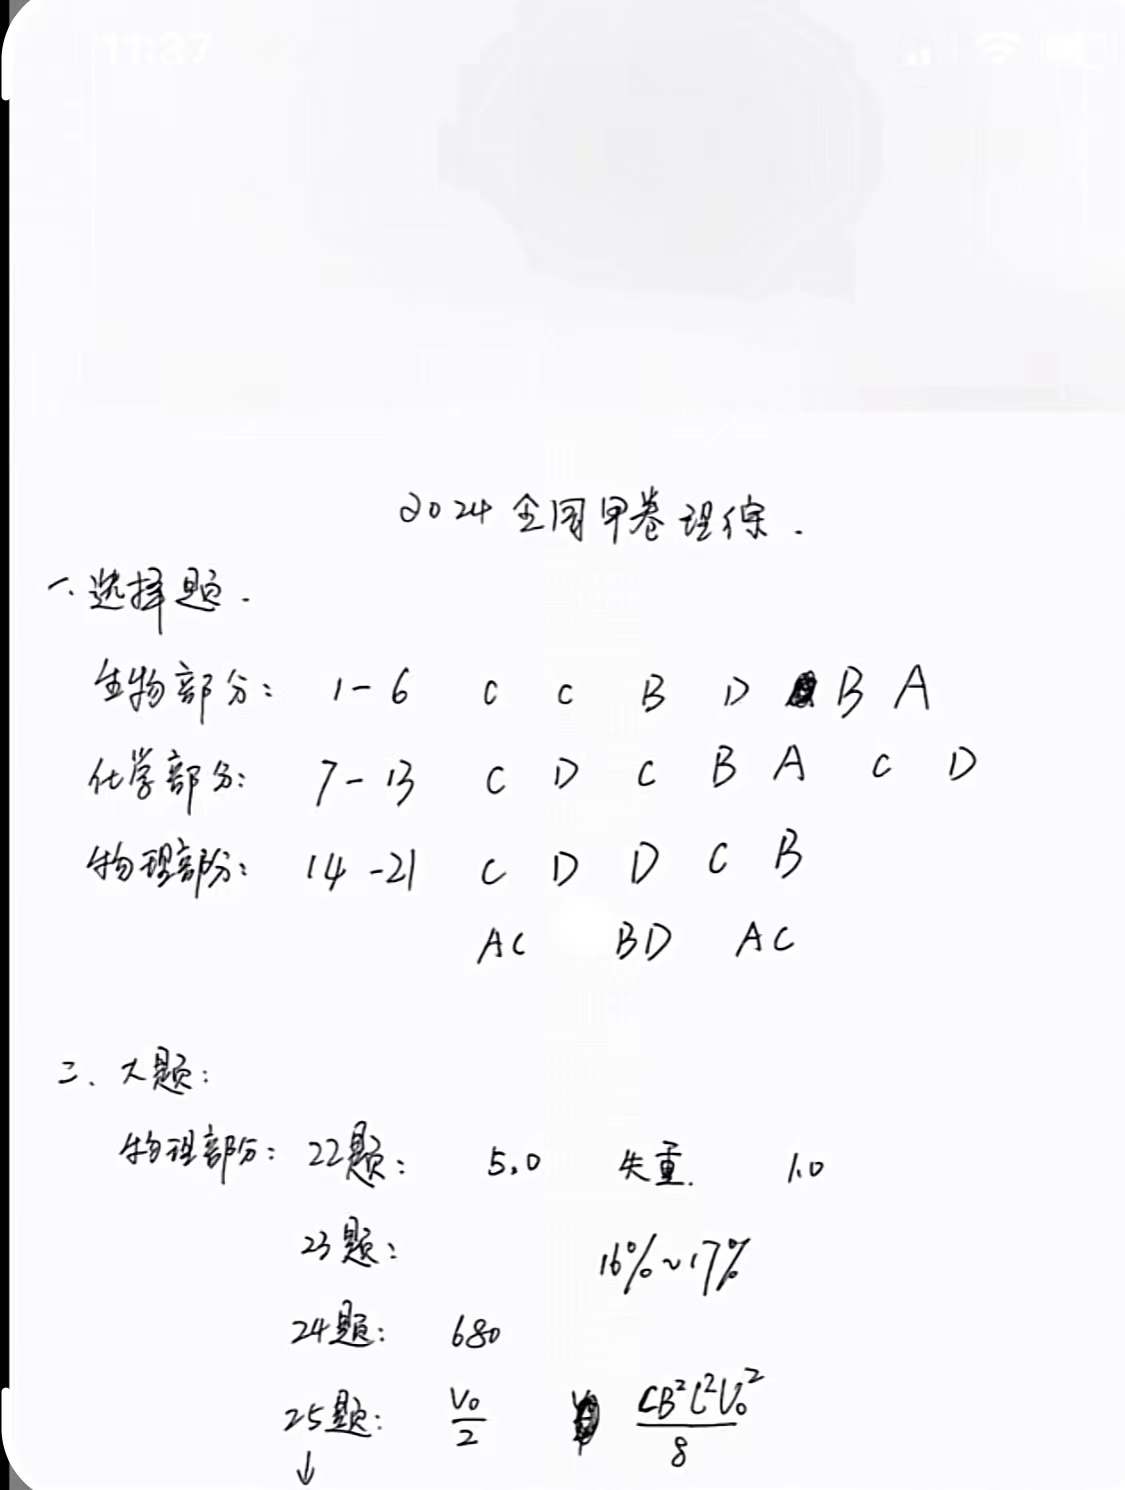 11:37
2024全国甲卷理综.
一、选择题.
生物部分: 1-6 C C B D B A
化学部分: 7-13 C D C B A C D
物理部分: 14-21 C D D C B
AC BD AC
二、大题:
物理部分: 22题: 5.0 失重. 1.0
23题: 16%~17%
24题: 680
25题: V₀/2 CB²L²V₀²/8
↓